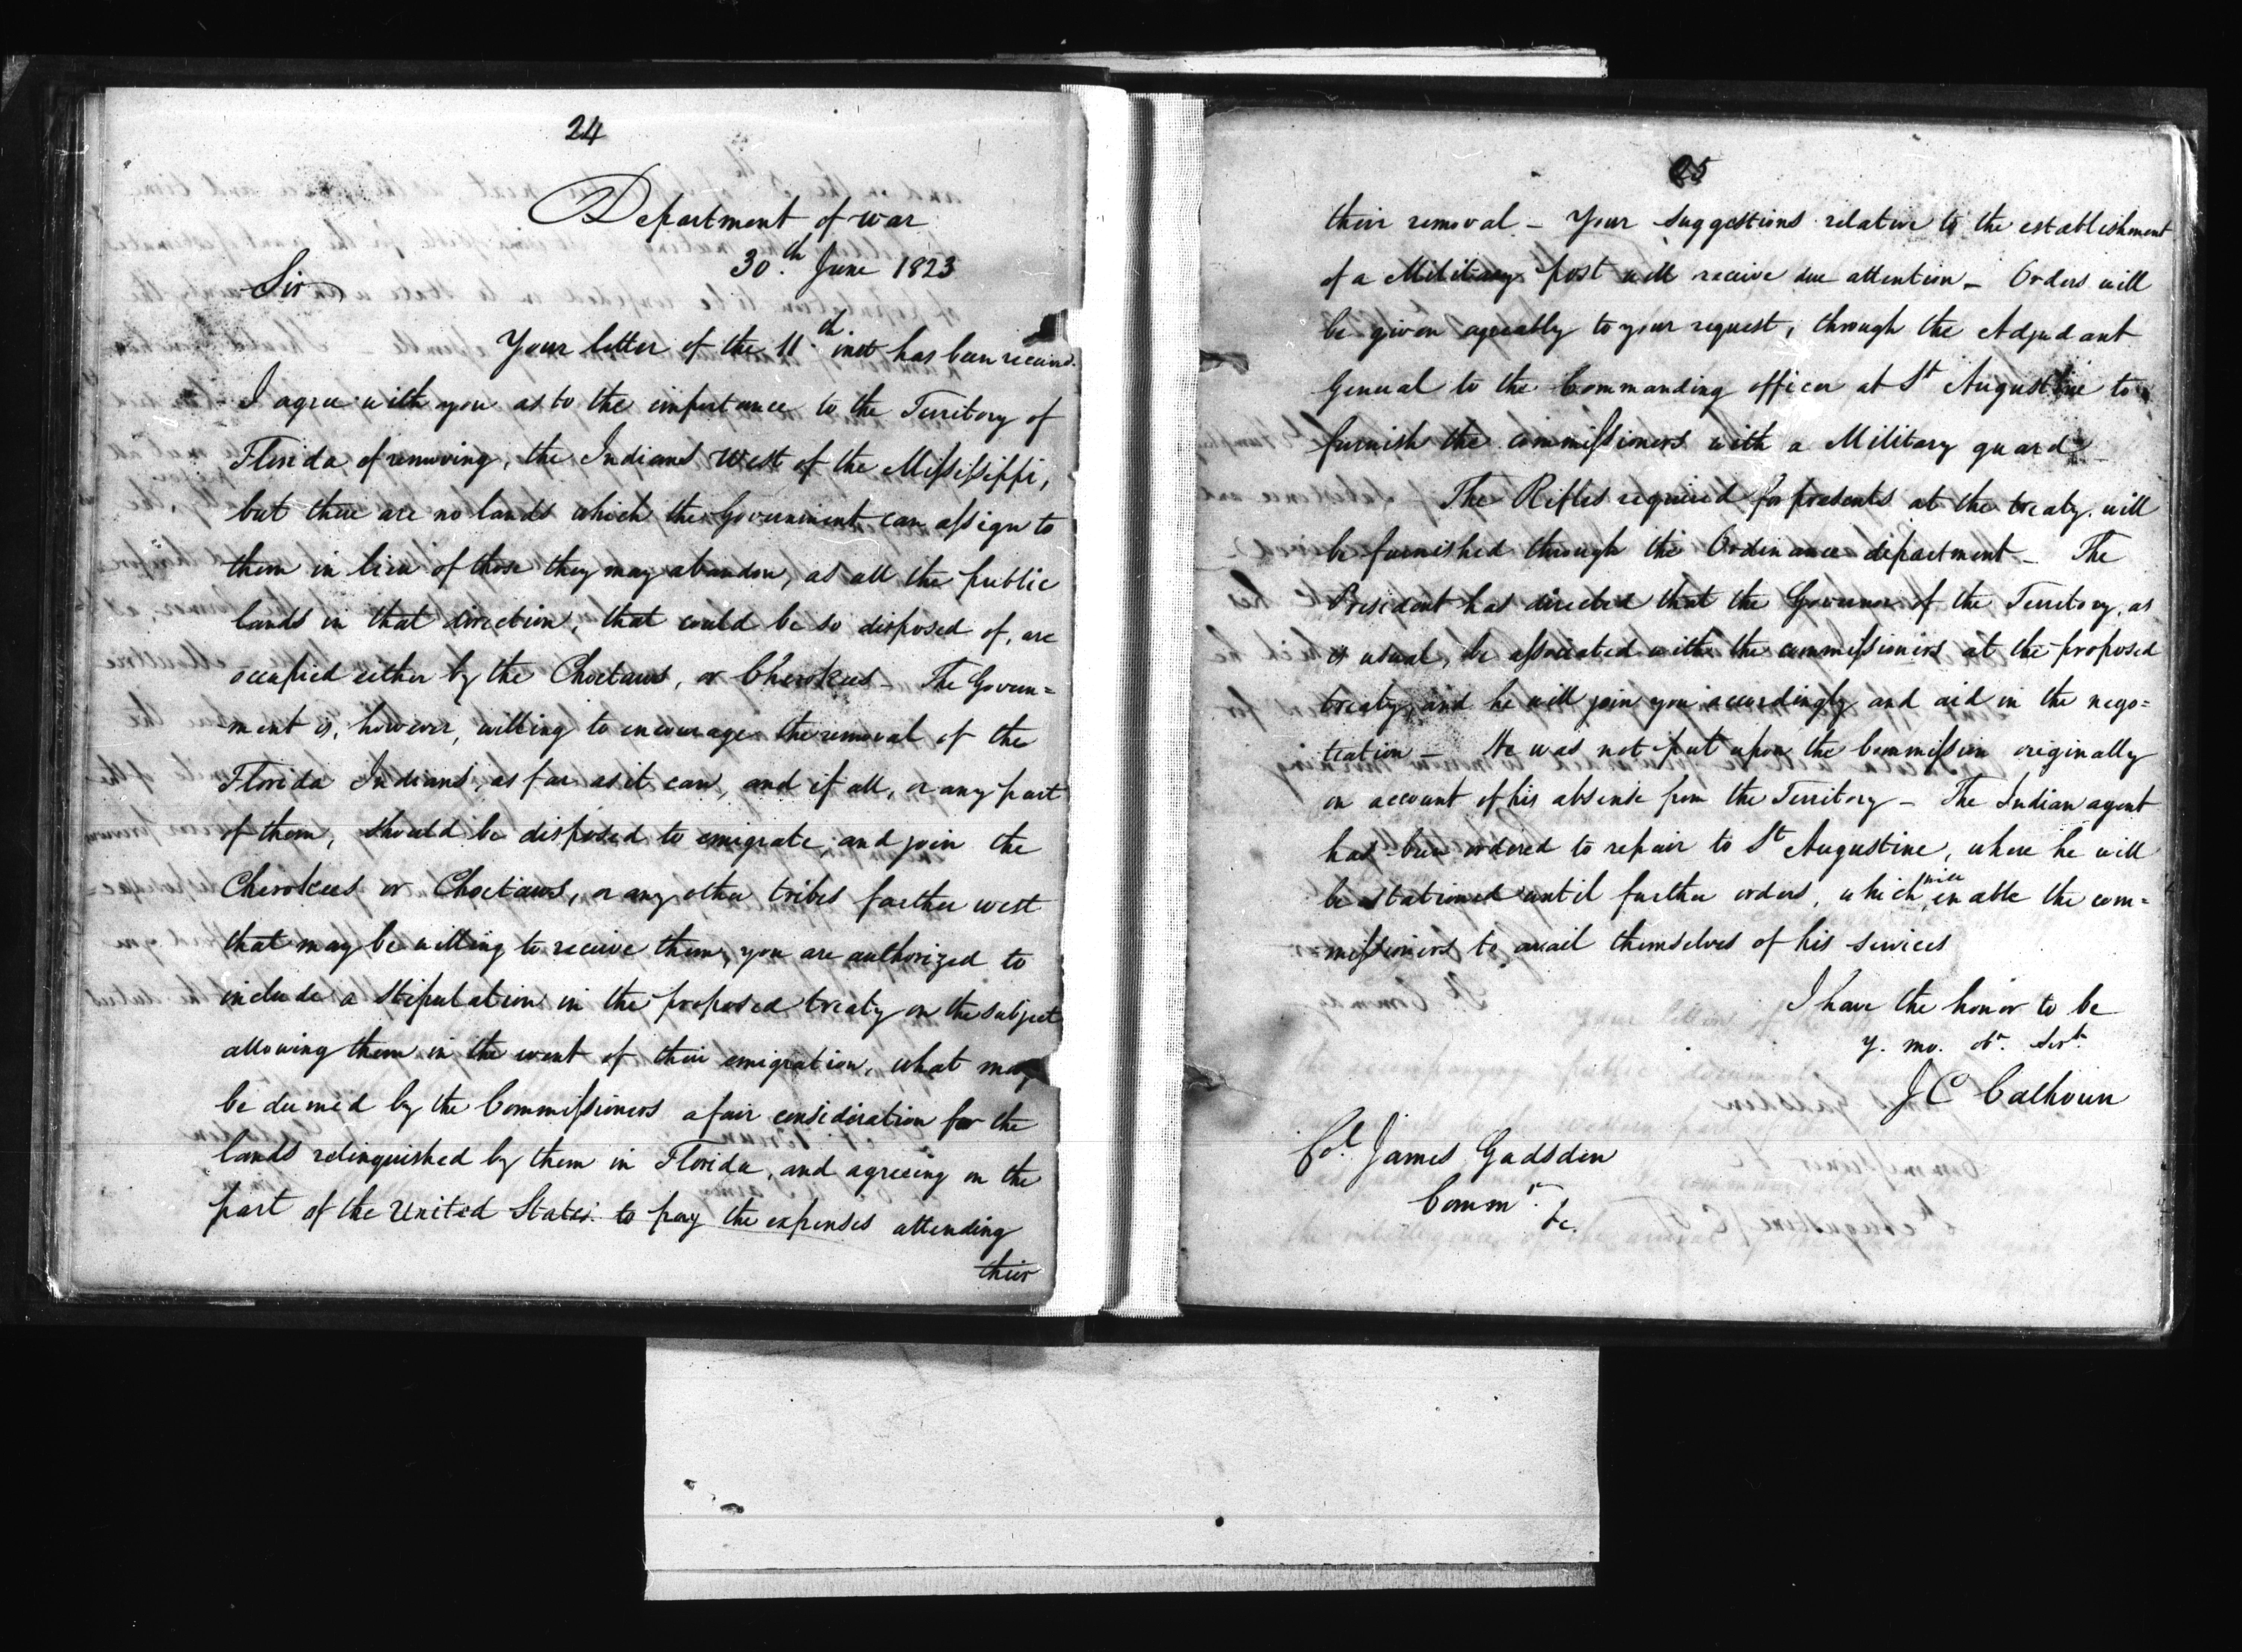 24
Department of war
30th June 1823
Sir
Your letter of the 11th inst has been received.
I agree with you as to the importance to the Territory of
Florida of removing, the Indians West of the Missisippi,
but there are no lands which the Government can assign to
them in lieu of those they may abandon, as all the public
lands in that direction, that could be so disposed of, are
occupied either by the Choctaws, or Cherokees – The Govern=
ment is, however, willing to encourage the removal of the
Florida Indians, as far as it can, and if all, or any part
of them, should be disposed to emigrate, and join the
Cherokees or Choctaws, or any other tribes farther west
that may be willing to receive them, you are authorized to
include a stipulation in the proposed treaty on the subject
allowing them in the event of their emigration, what may
be deemed by the Commissioners a fair consideration for the
lands relinquished by them in Florida, and agreeing on the
part of the United States to pay the expenses attending
their
25
their removal – Your suggestions relative to the establishment
of a Military post will receive due attention – Orders will
be given agreeably to your request, through the Adjudant
General to the Commanding officer at St Augustine to
furnish the commissioners with a Military guard
The Rifles required for presents at the treaty will
be furnished through the Ordinance department – The
President has directed that the Governor of the Territory, as
is usual, be associated with the commissioners at the proposed
treaty, and he will join you accordingly and aid in the nego=
tiation – He was not put upon the Commission originally
on account of his absense from the Territory – The Indian agent
has been ordered to repair to St Augustine, where he will
be stationed until further orders, which will enable the com=
missioners to avail themselves of his services
I have the honor to be
y. mo. ob. Servt.
J C Calhoun
Col. James Gadsden
Commr. &c.